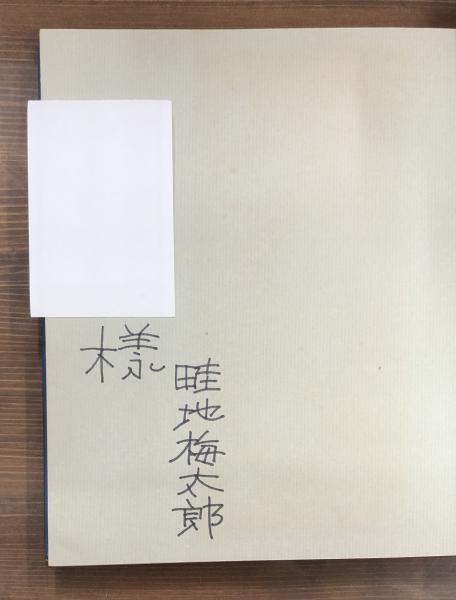 様
畦地梅太郎